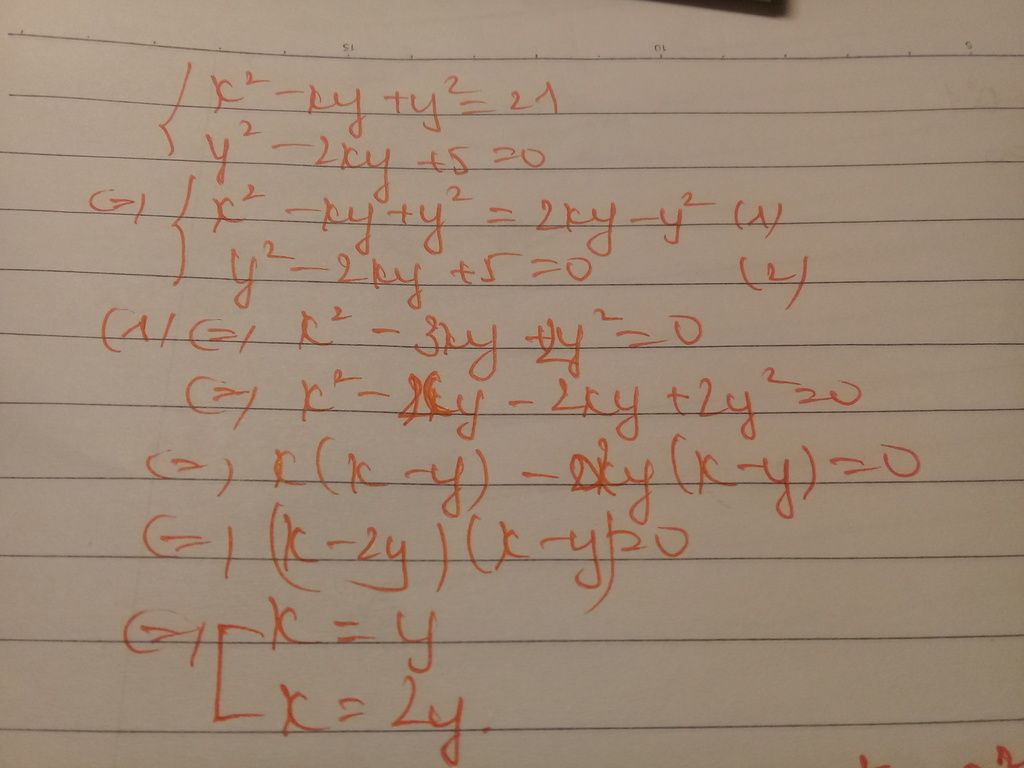 x² - xy + y² = 21
y² - 2xy + 5 = 0
(=) x² - xy + y² = 2xy - y² (1)
y² - 2xy + 5 = 0 (2)
(1) (=) x² - 3xy + 2y² = 0
(=) x² - xy - 2xy + 2y² = 0
(=) x(x - y) - 2y(x - y) = 0
(=) (x - 2y)(x - y) = 0
(=) x = y
x = 2y.